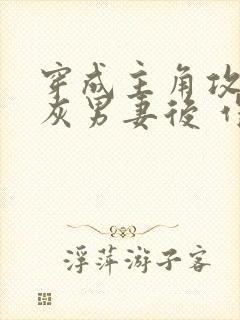 穿成主角攻
灰男妻後
浮萍游子客